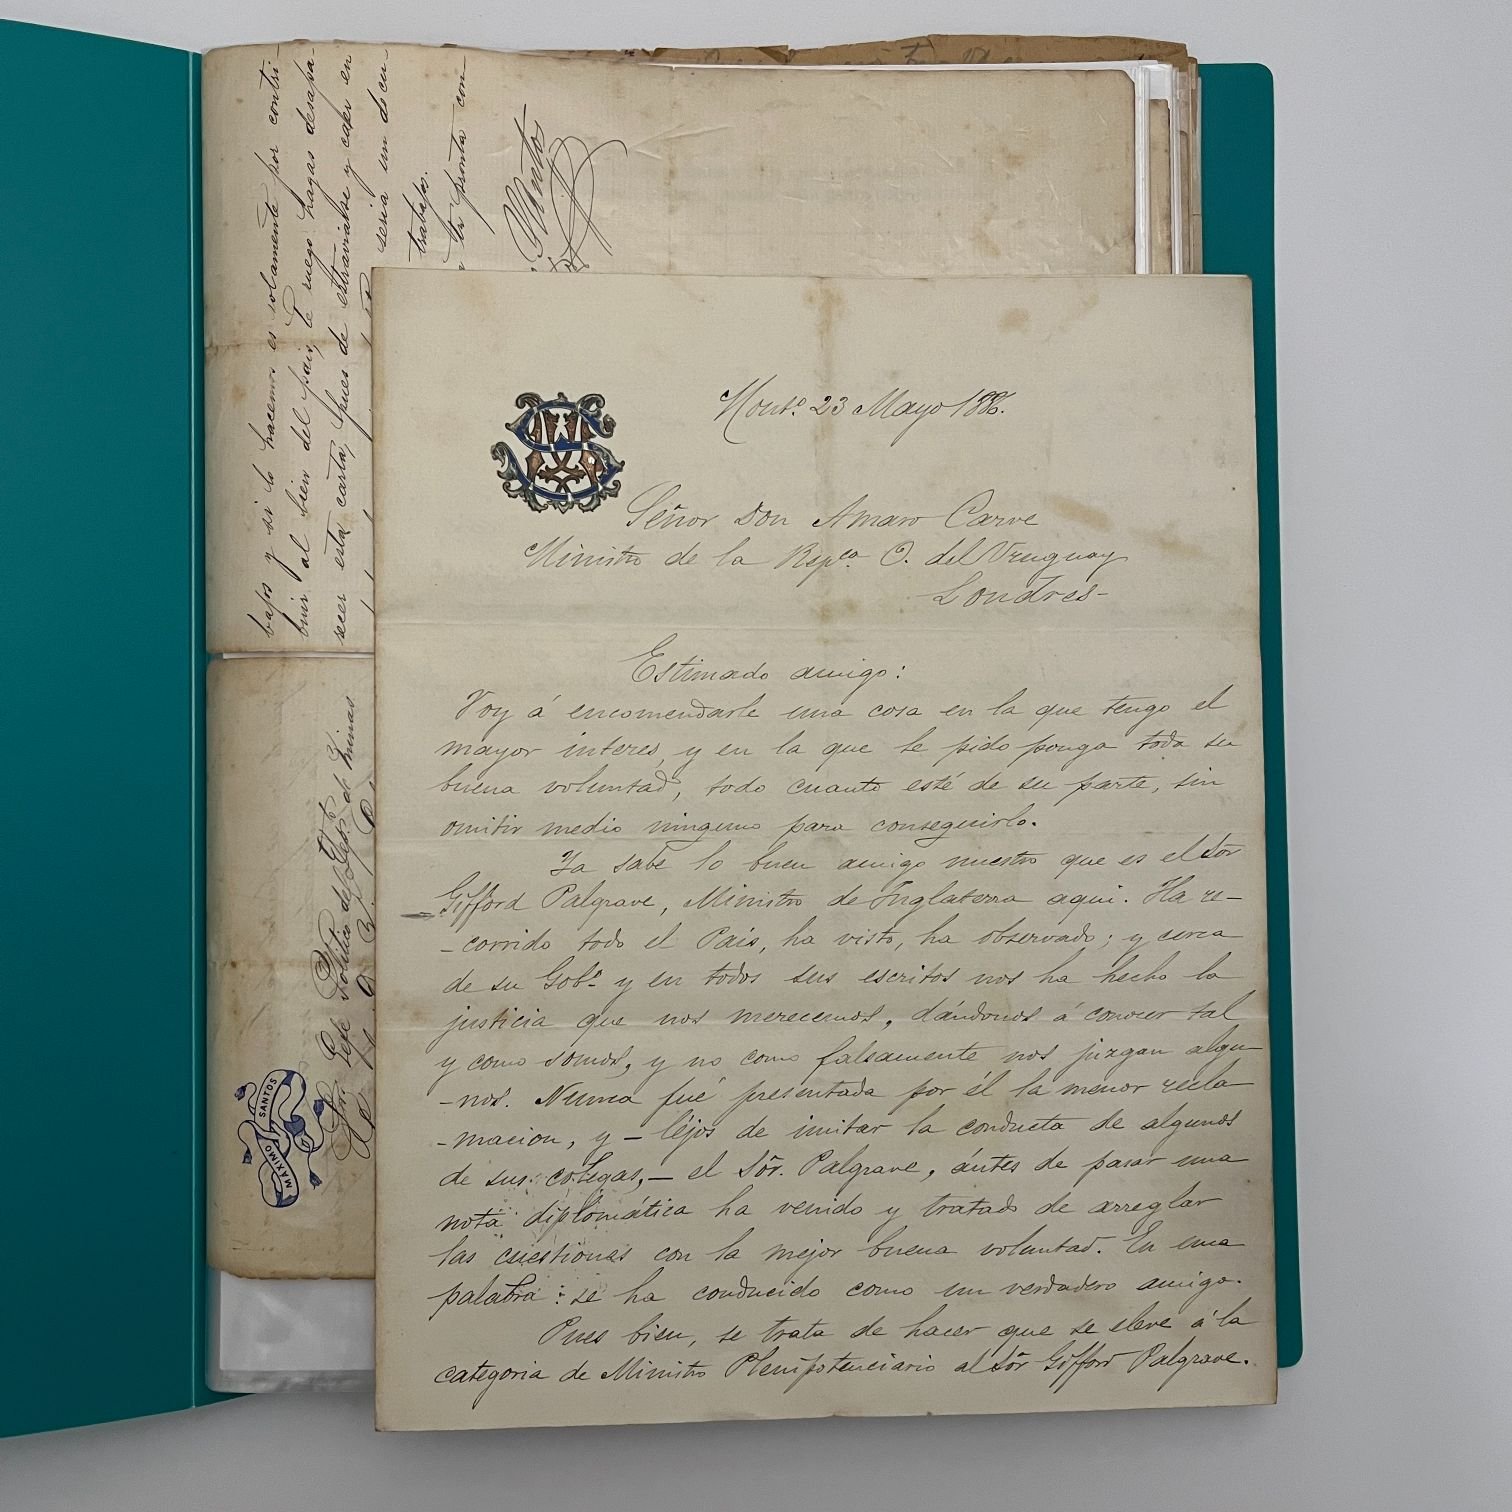 bajos y si lo hacemos es solamente por contri-
buir al bien del pais, te ruego hagas desapa-
recer esta carta, pues de estraviarse y caer en
seria un docu-
trabajos.
tu pronta con
Santos
Sor. Gefe Politico del Depto. de Minas
MÁXIMO SANTOS
Monto. 23 Mayo 1886.
Señor Don Amaro Carve
Ministro de la Repca. O. del Uruguay
Londres-
Estimado amigo:
Voy á encomendarle una cosa en la que tengo el
mayor interes, y en la que le pido ponga toda su
buena voluntad, todo cuanto esté de su parte, sin
omitir medio ninguno para conseguirlo.
Ya sabe lo buen amigo nuestro que es el Sor
Gifford Palgrave, Ministro de Inglaterra aqui. Ha re-
-corrido todo el Pais, ha visto, ha observado; y cerca
de su Gobo. y en todos sus escritos nos ha hecho la
justicia que nos merecemos, dándonos á conocer tal
y como somos, y no como falsamente nos juzgan algu-
-nos. Nunca fué presentada por él la menor recla-
-macion, y - léjos de imitar la conducta de algunos
de sus colegas, - el Sor. Palgrave, ántes de pasar una
nota diplomática ha venido y tratado de arreglar
las cuestiones con la mejor buena voluntad. En una
palabra: se ha conducido como un verdadero amigo.
Pues bien, se trata de hacer que se eleve á la
categoria de Ministro Plenipotenciario al Sor Gifford Palgrave.